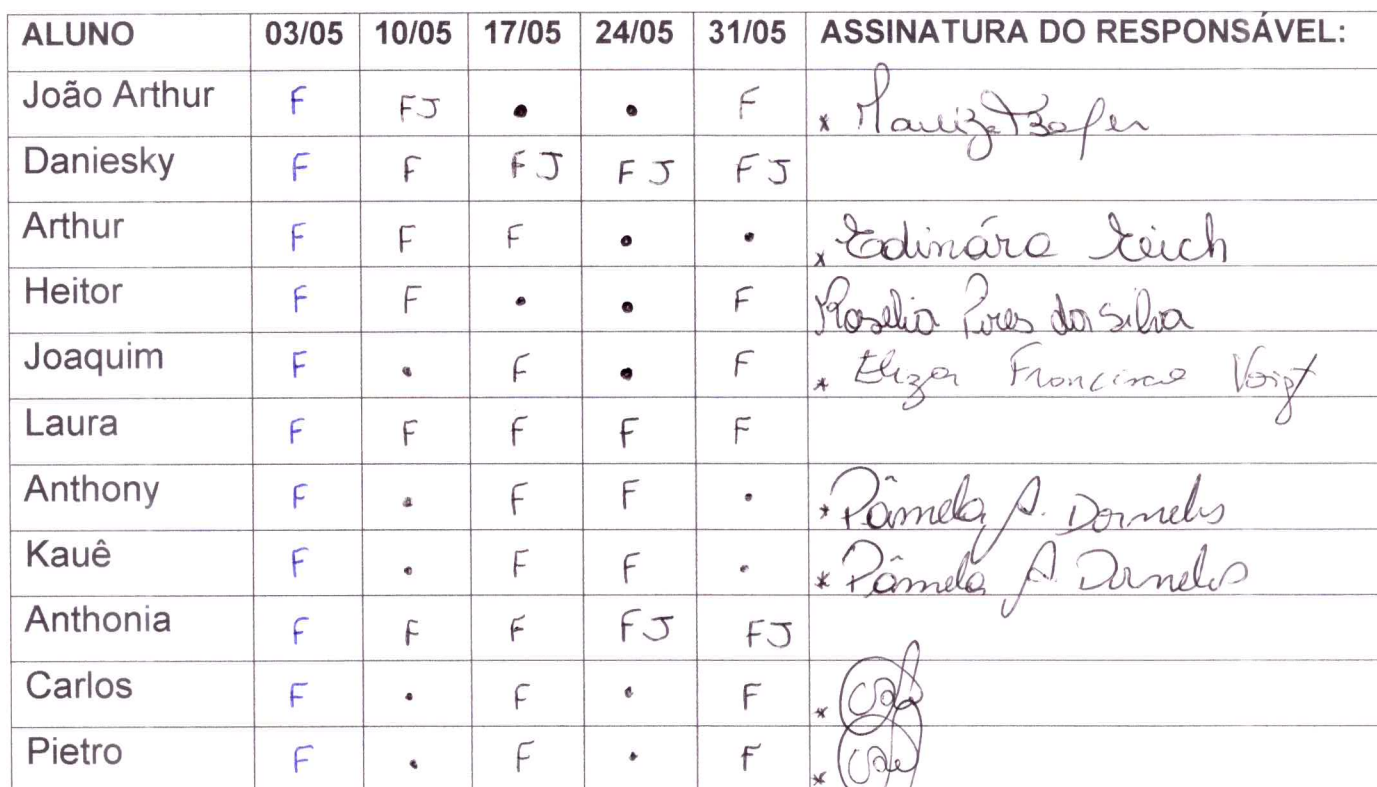 ALUNO 03/05 10/05 17/05 24/05 31/05 ASSINATURA DO RESPONSÁVEL:
João Arthur F FJ • • F *
Daniesky F F FJ FJ FJ
Arthur F F F • • * Edinára Reich
Heitor F F • • F Roselia Pires da Silva
Joaquim F • F • F * Eliza Francisca Voigt
Laura F F F F F
Anthony F • F F • * Pâmela A. Dornelis
Kauê F • F F • * Pâmela A. Dornelis
Anthonia F F F FJ FJ
Carlos F • F • F *
Pietro F • F • F *